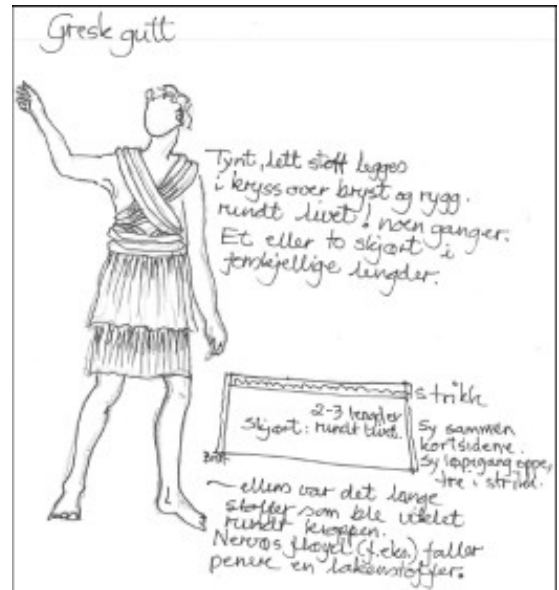 Gresk gutt
Tynt, lett stoff legges
i kryss over bryst og rygg.
rundt livet! noen ganger.
Et eller to skjørt i
forskjellige lengder.
strikk
2-3 lengder
Skjørt: rundt livet.
Sy sammen
kortsidene.
Sy løpegang oppe,
tre i strikk.
– ellers var det lange
stoffer som ble viklet
rundt kroppen.
Nervøs fløyel (f.eks.) faller
penere en lakenstoffer.